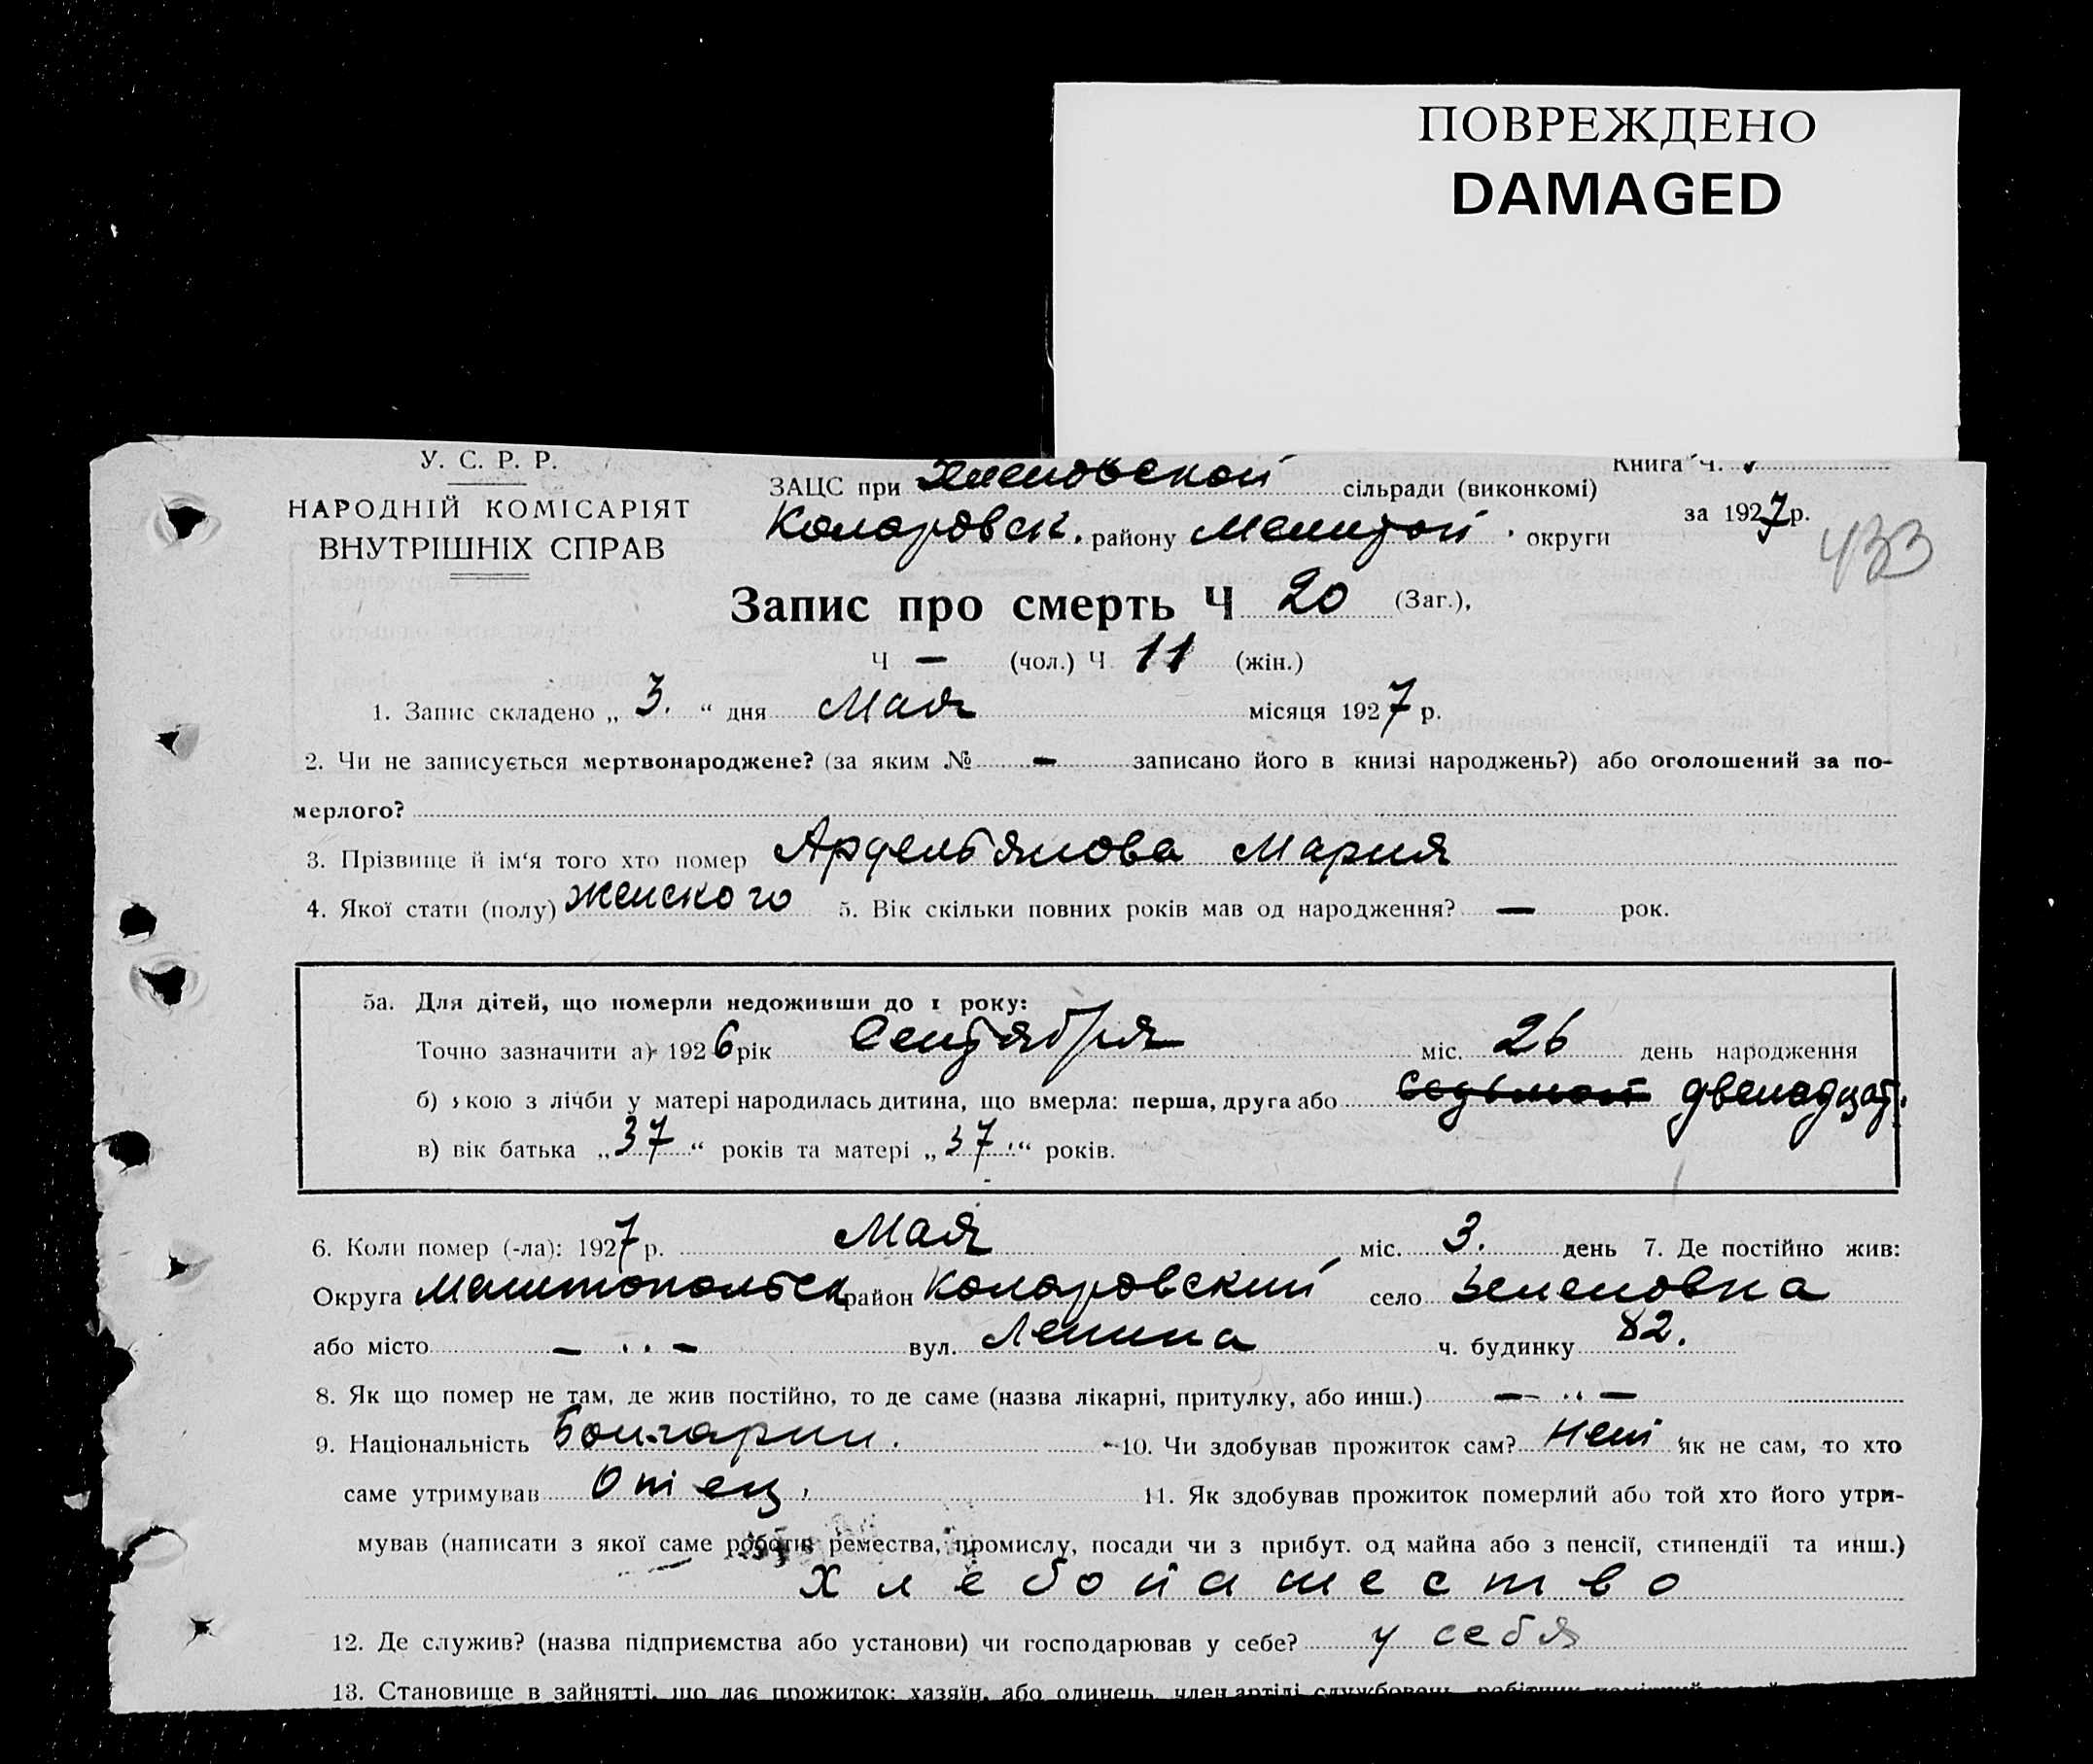 ПОВРЕЖДЕНО
DAMAGED
У. С. Р. Р.
НАРОДНІЙ КОМІСАРІЯТ
ВНУТРІШНІХ СПРАВ
Книга Ч.
ЗАЦС при Зеленовской сільради (виконкомі)
за 1927 р.
Коларовск. району Мелитой. округи
433
Запис про смерть Ч 20 (Заг.),
Ч — (чол.) Ч 11 (жін.)
1. Запис складено „ 3. “ дня Мая місяця 1927 р.
2. Чи не записується мертвонароджене? (за яким № — записано його в книзі народжень?) або оголошений за по-
мерлого?
3. Прізвище й ім‘я того хто помер Мария
4. Якої стати (полу) женского 5. Вік скільки повних років мав од народження? — рок.
5а. Для дітей, що померли недоживши до 1 року:
Точно зазначити а) 1926 рік Сентября міс. 26 день народження
б) якою з лічби у матері народилась дитина, що вмерла: перша, друга або седьмой двенадцат.
в) вік батька „ 37 “ років та матері „ 37 “ років.
6. Коли помер (-ла): 1927 р. Мая міс. 3. день 7. Де постійно жив:
Округа район Коларовский село Зеленовка
або місто — . . — вул. Ленина ч. будинку 82.
8. Як що помер не там, де жив постійно, то де саме (назва лікарні, притулку, або инш.) — . . —
9. Національність 10. Чи здобував прожиток сам? Нет як не сам, то хто
саме утримував Отец. 11. Як здобував прожиток померлий або той хто його утри-
мував (написати з якої саме роботи ремества, промислу, посади чи з прибут. од майна або з пенсії, стипендії та инш.)
хлебопашество
12. Де служив? (назва підприємства або установи) чи господарював у себе? у себя
13. Становище в зайнятті, що дає прожиток: хазяїн, або одинець, член артілі